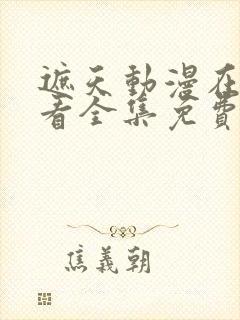 遮天動漫在
看全集免費
焦義朝